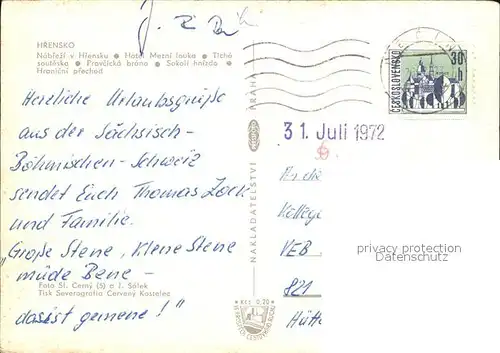 HŘENSKO
Nábřeží v Hřensku • Hotel Mezní louka • Tichá
soutěska • Pravčická brána • Sokolí hnízdo •
Hraniční přechod
Herzliche Urlaubsgrüße
aus der Sächsisch-
Böhmischen-Schweiz
sendet Euch Thomas Zock
und Familie.
„Große Stene, Klene Stene
müde Bene –
Foto St. Černý (5) a J. Sálek
Tisk Severografia Červený Kostelec
das ist gemene!"
NAKLADATELSTVÍ PRAHA
Kčs 0,20
ČESKOSLOVENSKO
30 h
31. Juli 1972
An die
Kolleg
VEB
821
Hütte
privacy protection
Datenschutz